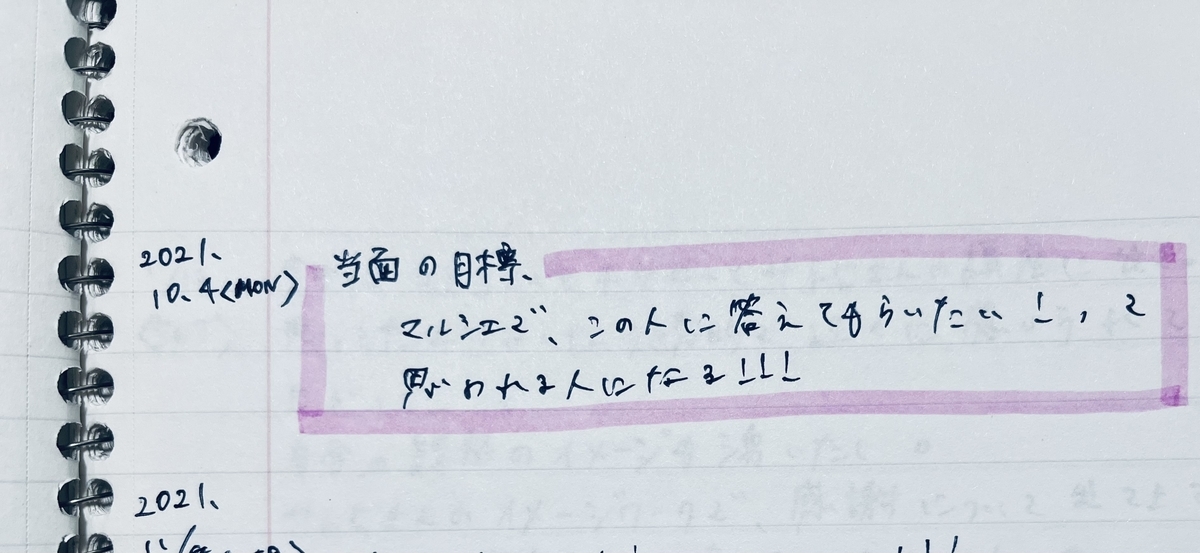 2021、
10、4<MON>
当面の目標、
マルシエで、この人に答えてもらいたい！、と
思われる人になる!!!
2021、